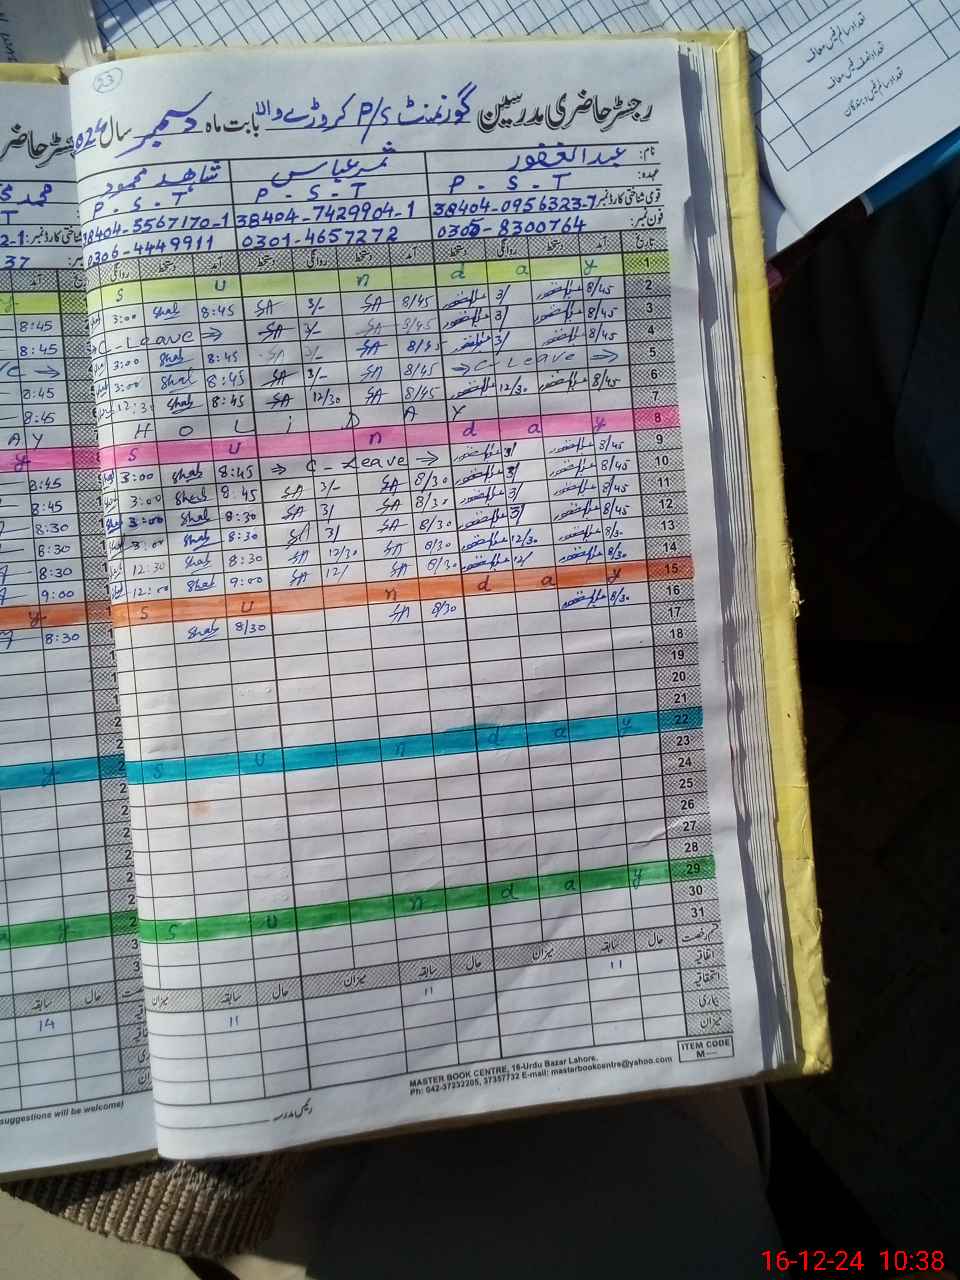 23
رجسٹر حاضری مدرسین گورنمنٹ P/S کروڑے والا بابت ماہ دسمبر سال 2024
نام: عبدالغفور ثمر عباس شاہد محمود
عہدہ: P - S - T P - S - T P. S - T
قومی شناختی کارڈ نمبر: 38404-0956323-7 38404-7429904-1 38404-5567170-1
فون نمبر: 0305-8300764 0301-4657272 0306-4449911
تاریخ آمد دستخط روانگی دستخط آمد دستخط روانگی دستخط آمد دستخط روانگی
1 S u n d a y
2 8/45 3/ 8/45 SA 3/- SA 8:45 Shah 3:00
3 8/45 3/ 8/45 SA 3/- SA C-Leave →
4 8/45 3/ 8/45 SA 3/- SA 8:45 Shah 3:00
5 → C-Leave → 8/45 SA 3/- SA 8:45 Shah 3:00
6 8/45 12/30 8/45 SA 12/30 SA 8:45 Shah 12:30
7 H O L i D A Y
8 S u n d a y
9 8/45 3/ → C-Leave → 8:45 Shah 3:00
10 8/45 3/ 8/30 SA 3/- SA 8:45 Shah 3:00
11 8/45 3/ 8/30 SA 3/ SA 8:30 Shah 3:00
12 8/45 3/ 8/30 SA 3/ SA 8:30 Shah 3:00
13 8/30 12/30 8/30 SA 12/30 SA 8:30 Shah 12:30
14 8/30 12/ 8/30 SA 12/ SA 9:00 Shah 12:00
15 S u n d a y
16 8/30 8/30 SA 8/30 Shah
17
18
19
20
21
22 S u n d a y
23
24
25
26
27
28
29 S u n d a y
30
31
قسم رخصت حال سابقہ میزان حال سابقہ میزان حال سابقہ میزان
اتفاقیہ 11 11 11
استحقاقیہ
بیماری
میزان
ITEM CODE
M---
MASTER BOOK CENTRE, 16-Urdu Bazar Lahore.
Ph: 042-37232205, 37357732 E-mail: masterbookcentre@yahoo.com
رئیس مدرسہ
8:45
8:45
8:45
8:45
8:45
8:45
8:30
8:30
8:30
9:00
8:30
14
suggestions will be welcome)
تعداد سالم فیس معاف
تعداد نصف فیس معاف
تعداد سالم فیس دہندگان
16-12-24 10:38